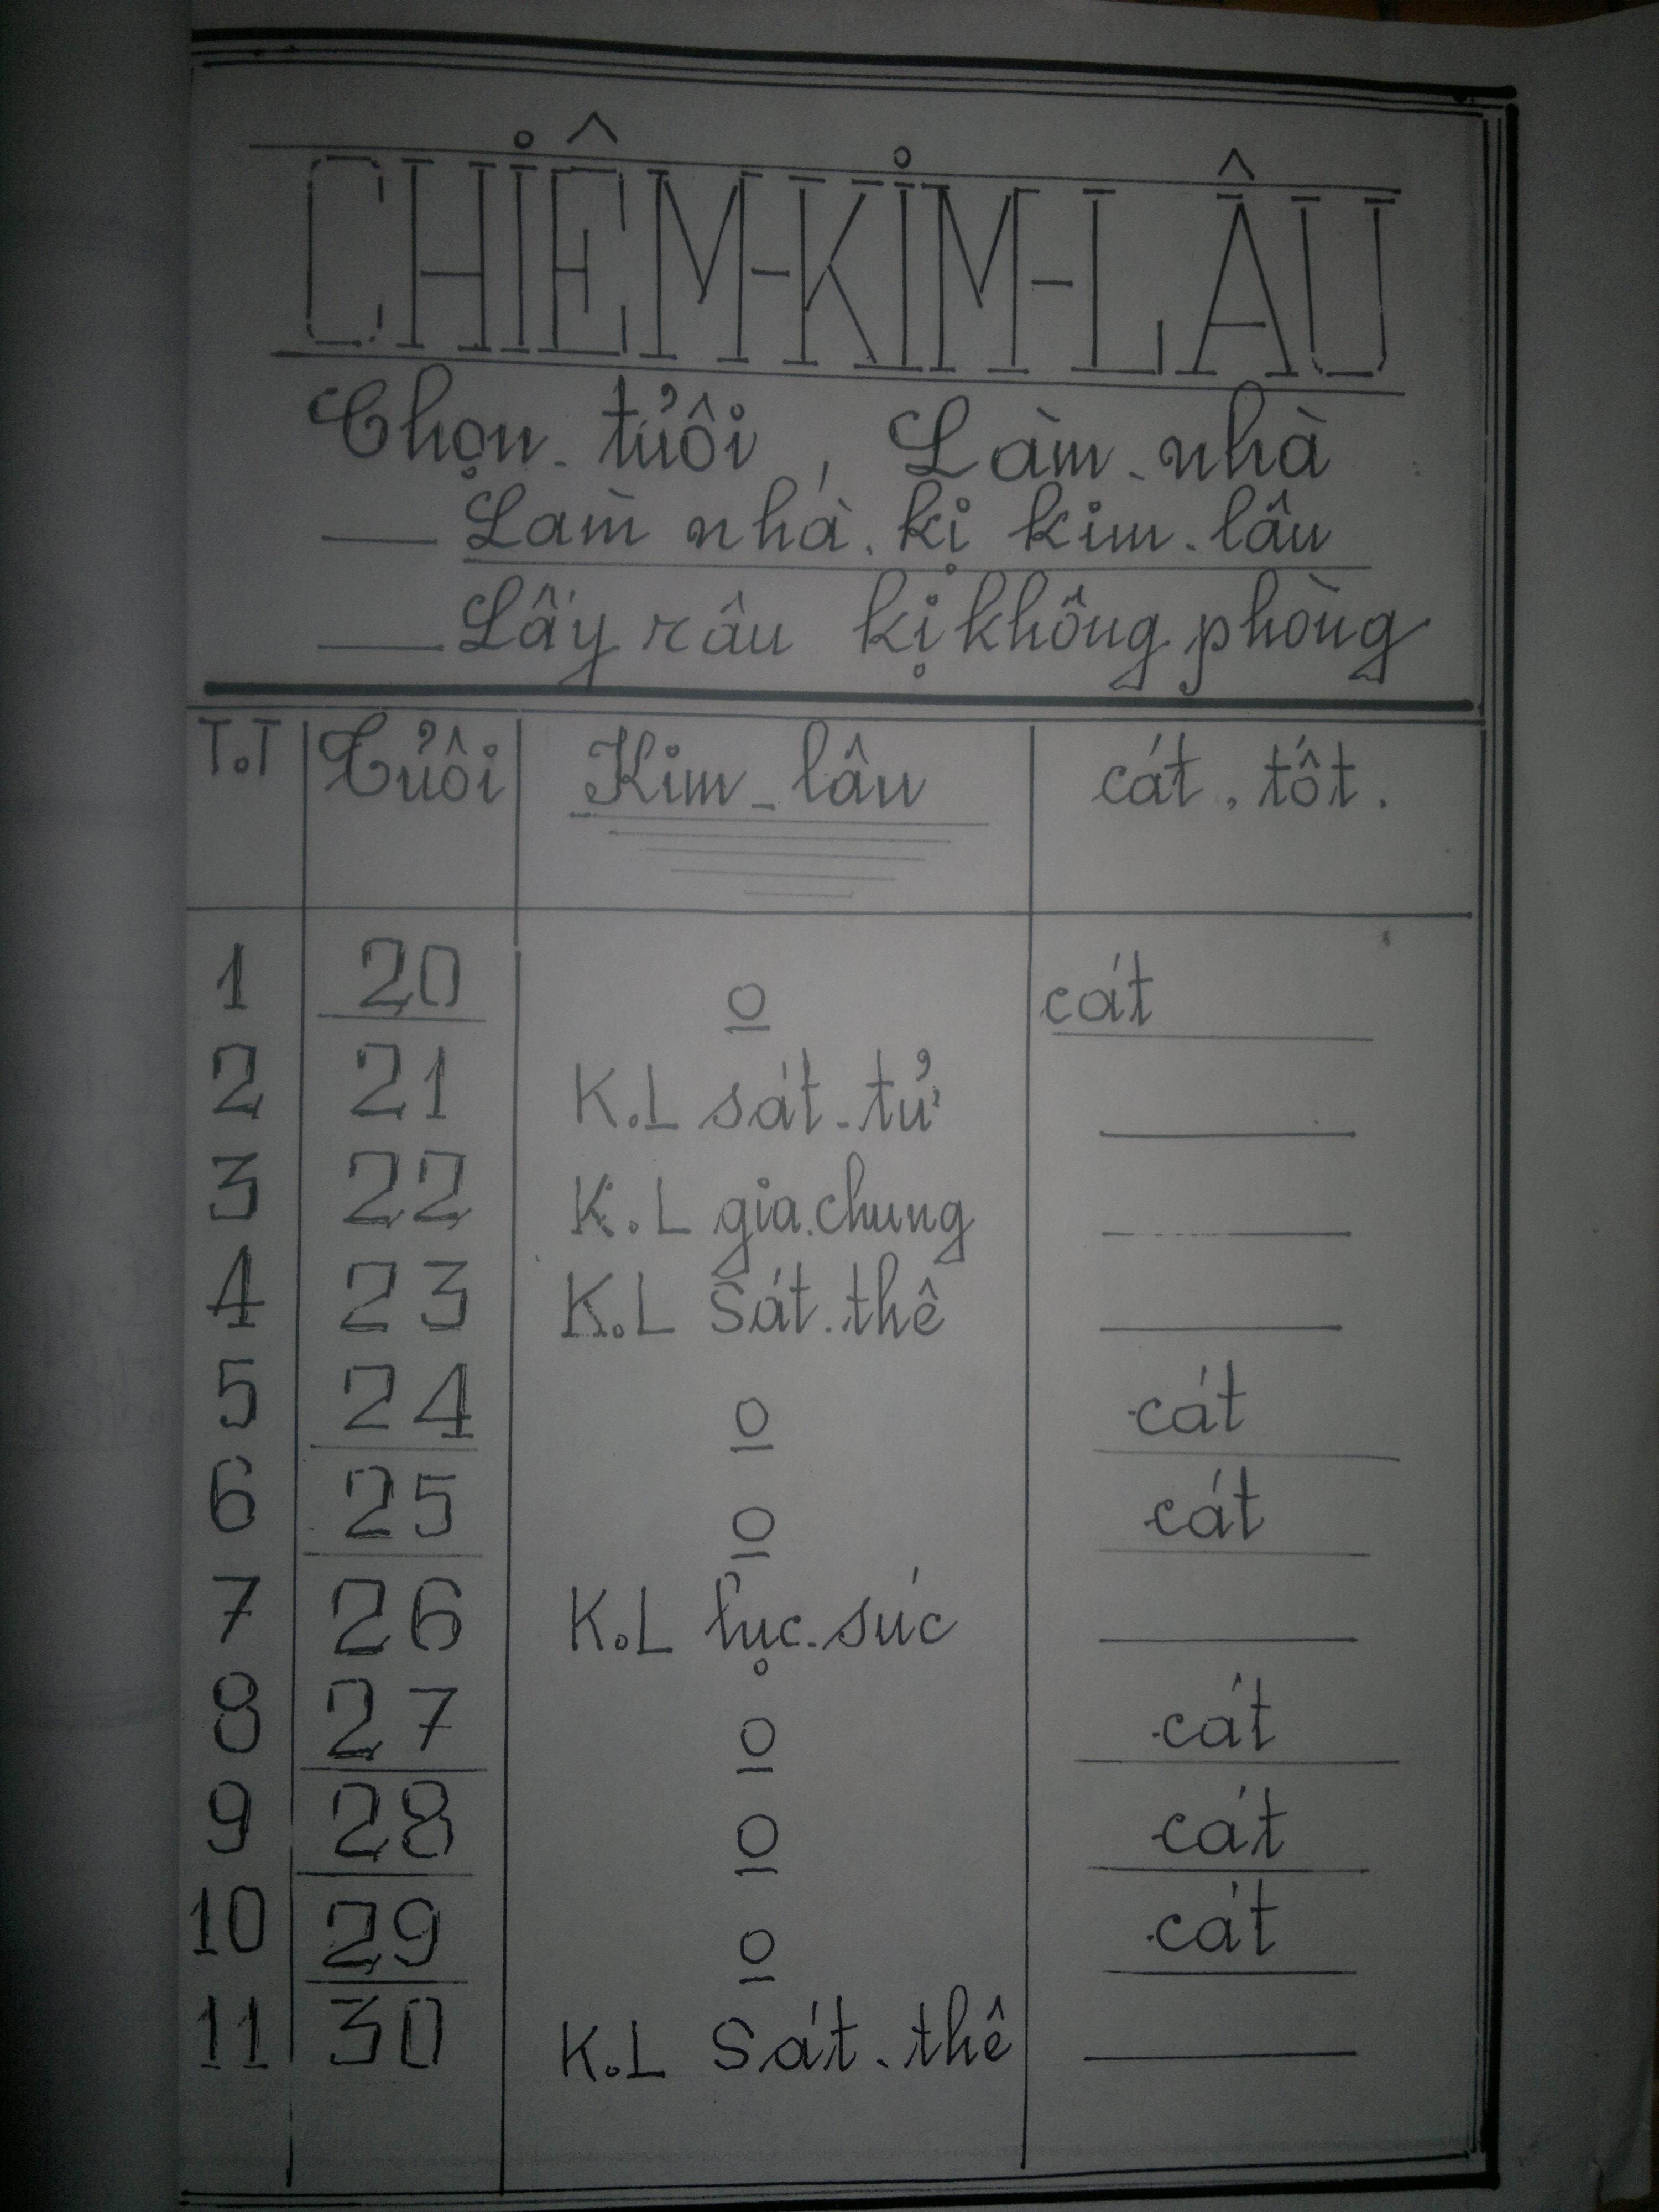 CHIÊM-KIM-LÂU
Chọn. tuổi, Làm. nhà
— Làm nhà. kị kim. lâu
— Lấy râu kị không phòng
T.T Tuổi Kim_lâu cát, tốt.
1 20 0 cát
2 21 K.L sát-tử —
3 22 K.L gia.chung —
4 23 K.L Sát.thê —
5 24 0 cát
6 25 0 cát
7 26 K.L lục.súc —
8 27 0 cát
9 28 0 cát
10 29 0 cát
11 30 K.L Sát.thê —